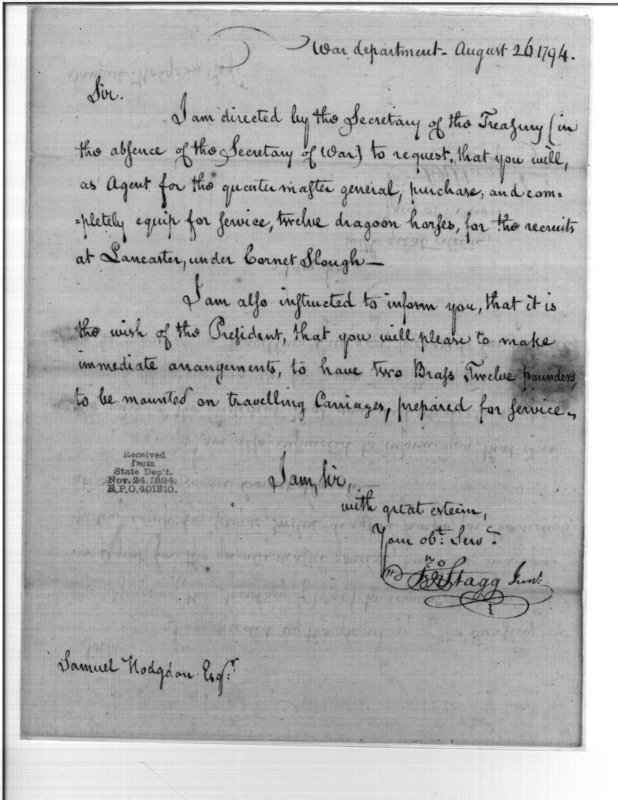 War department - August 26 1794.
Sir.
I am directed by the Secretary of the Treasury (in
the absence of the Secretary of War) to request, that you will,
as Agent for the quarter master general, purchase, and com=
=pletely equip for service, twelve dragoon horses, for the recruits
at Lancaster, under Cornet Slough —
I am also instructed to inform you, that it is
the wish of the President, that you will please to make
immediate arrangements, to have two Brass Twelve pounders,
to be mounted on travelling Carriages, prepared for service,
Received
from
State Dep't.
Nov. 24, 1894.
R.P.O. 401810.
I am, Sir,
with great esteem,
Your obt. Servt.
Jno Stagg Junr.
Samuel Hodgdon Esqr.